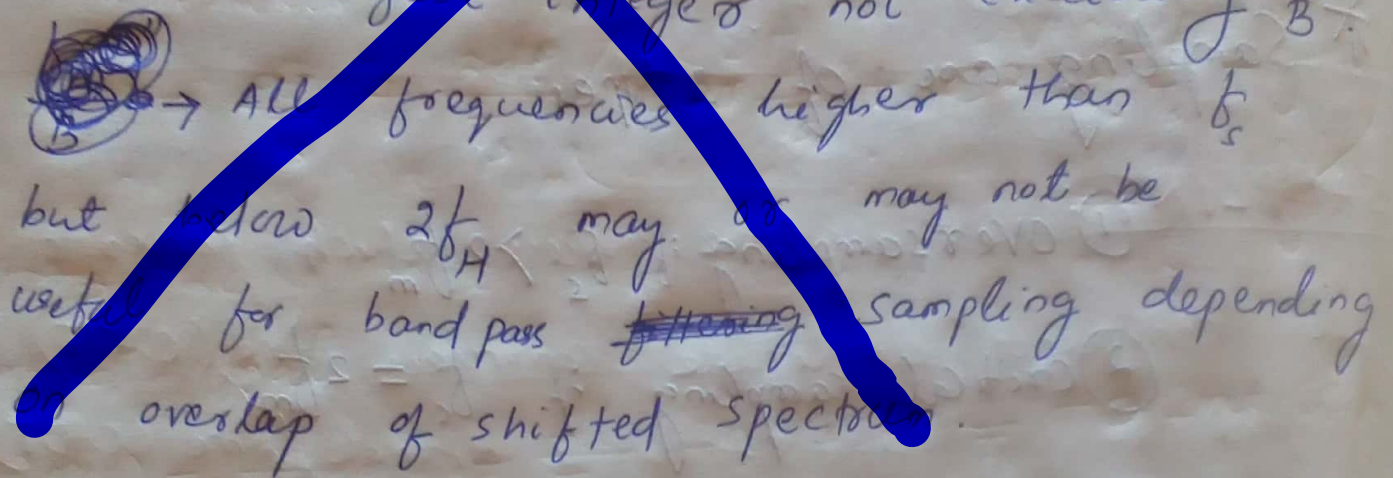 integer not J B.
→ All frequencies higher than fs
but below 2fH may or may not be
useful for band pass sampling depending
on overlap of shifted spectrum.